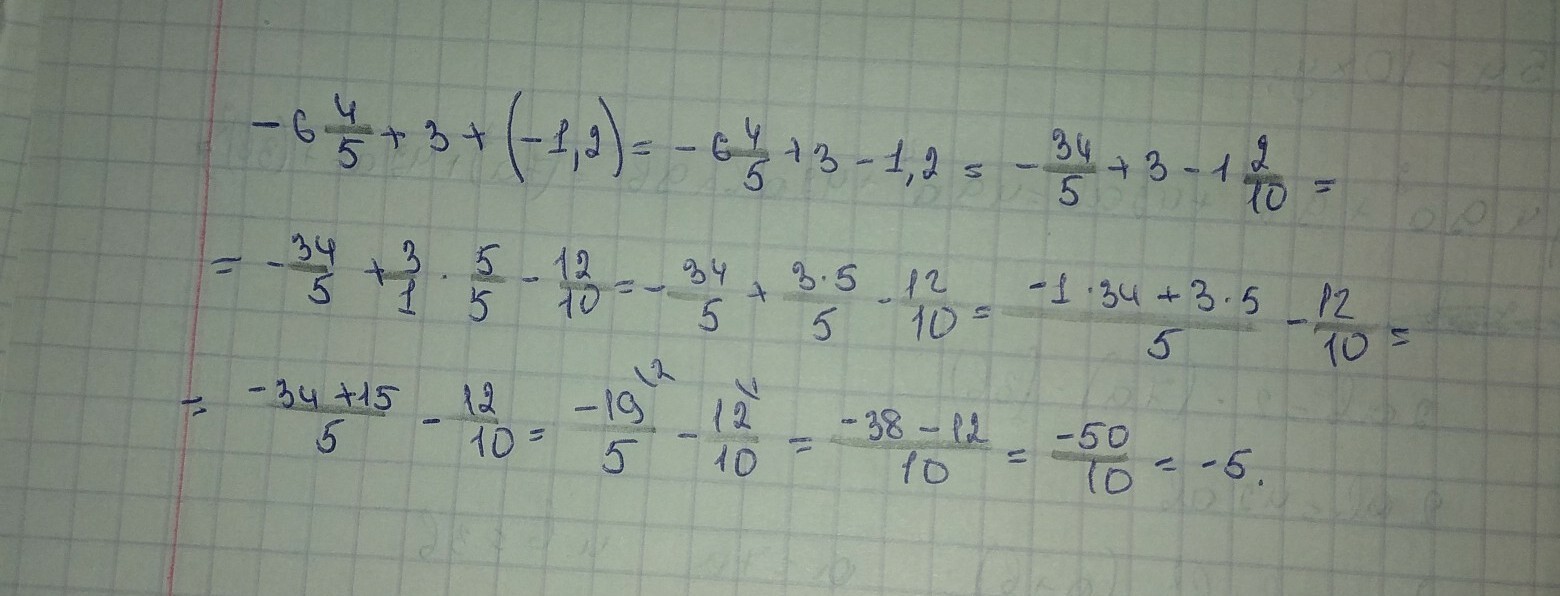 -6 4/5 + 3 + (-1,2) = -6 4/5 + 3 - 1,2 = -34/5 + 3 - 1 2/10 =
= -34/5 + 3/1 · 5/5 - 12/10 = -34/5 + 3·5/5 - 12/10 = -1·34+3·5/5 - 12/10 =
= -34+15/5 - 12/10 = -19\2/5 - 12\/10 = -38-12/10 = -50/10 = -5.